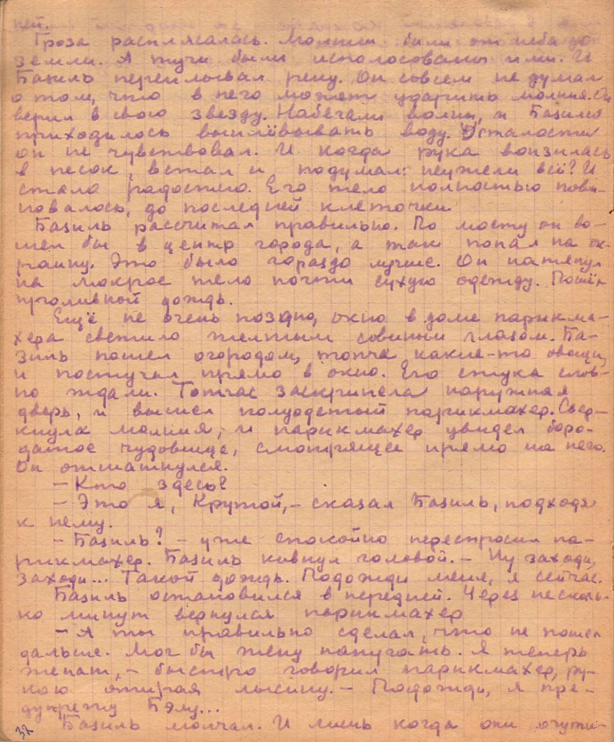 ней.
Гроза расплясалась. Молнии били от неба до
земли. А тучи были исполосованы ими. И
Базиль переплывал реку. Он совсем не думал
о том, что в него может ударить молния. Он
верил в свою звезду. Набегали волны, и Базилю
приходилось выплёвывать воду. Усталости
он не чувствовал. И когда рука вонзилась
в песок, встал и подумал: неужели всё? И
стало радостно. Его тело полностью пови-
новалось, до последней клеточки
Базиль рассчитал правильно. По мосту он во-
шел бы в центр города, а так попал на ок-
раину. Это было гораздо лучше. Он натянул
на мокрое тело почти сухую одежду. Пошёл
проливной дождь.
Ещё не очень поздно, окно в доме парикма-
хера светило желтым совиным глазом. Ба-
зиль пошел огородом, топча какие-то овощи,
и постучал прямо в окно. Его стука слов-
но ждали. Тотчас заскрипела наружная
дверь, и вышел полуодетый парикмахер. Свер-
кнула молния, и парикмахер увидел боро-
датое чудовище, смотрящее прямо на него.
Он отшатнулся.
– Кто здесь?
– Это я, Крутой, – сказал Базиль, подходя
к нему.
– Базиль? – уже спокойно переспросил па-
рикмахер. Базиль кивнул головой. – Ну заходи,
заходи... Такой дождь. Подожди меня, я сейчас.
Базиль остановился в передней. Через несколь-
ко минут вернулся парикмахер
– А ты правильно сделал, что не пошел
дальше. Мог бы жену напугать. Я теперь
женат, – быстро говорил парикмахер, ру-
кою отирая лысину. – Подожди, я пре-
дупрежу Бэму...
Базиль молчал. И лишь когда они очути-
32